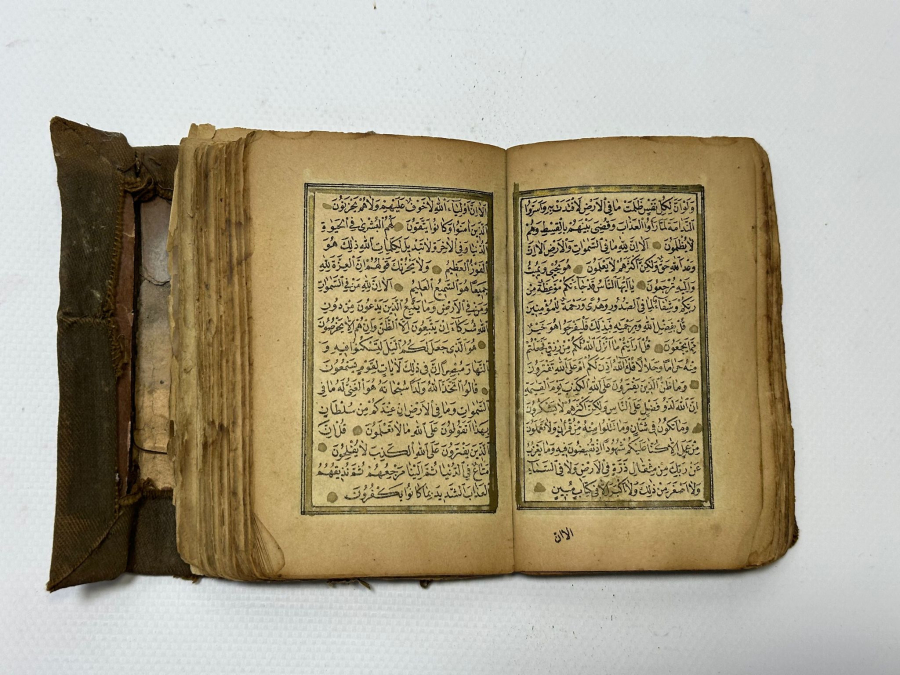 وَلَوْ اَنَّ لِكُلِّ نَفْسٍ ظَلَمَتْ مَا فِي الْاَرْضِ لَافْتَدَتْ بِهِ وَاَسَرُّوا
النَّدَامَةَ لَمَّا رَاَوُا الْعَذَابَ وَقُضِيَ بَيْنَهُمْ بِالْقِسْطِ وَهُمْ
لَا يُظْلَمُونَ اَلَا اِنَّ لِلّٰهِ مَا فِي السَّمٰوَاتِ وَالْاَرْضِ اَلَا اِنَّ
وَعْدَ اللهِ حَقٌّ وَلٰكِنَّ اَكْثَرَهُمْ لَا يَعْلَمُونَ هُوَ يُحْيِي وَيُمِيتُ
وَاِلَيْهِ تُرْجَعُونَ يَا اَيُّهَا النَّاسُ قَدْ جَاءَتْكُمْ مَوْعِظَةٌ مِنْ
رَبِّكُمْ وَشِفَاءٌ لِمَا فِي الصُّدُورِ وَهُدًى وَرَحْمَةٌ لِلْمُؤْمِنِينَ
قُلْ بِفَضْلِ اللهِ وَبِرَحْمَتِهِ فَبِذٰلِكَ فَلْيَفْرَحُوا هُوَ خَيْرٌ
مِمَّا يَجْمَعُونَ قُلْ اَرَاَيْتُمْ مَا اَنْزَلَ اللهُ لَكُمْ مِنْ رِزْقٍ فَجَعَلْتُمْ
مِنْهُ حَرَامًا وَحَلَالًا قُلْ آللهُ اَذِنَ لَكُمْ اَمْ عَلَى اللهِ تَفْتَرُونَ
وَمَا ظَنُّ الَّذِينَ يَفْتَرُونَ عَلَى اللهِ الْكَذِبَ يَوْمَ الْقِيٰمَةِ
اِنَّ اللهَ لَذُو فَضْلٍ عَلَى النَّاسِ وَلٰكِنَّ اَكْثَرَهُمْ لَا يَشْكُرُونَ
وَمَا تَكُونُ فِي شَأْنٍ وَمَا تَتْلُوا مِنْهُ مِنْ قُرْاٰنٍ وَلَا تَعْمَلُونَ
مِنْ عَمَلٍ اِلَّا كُنَّا عَلَيْكُمْ شُهُودًا اِذْ تُفِيضُونَ فِيهِ وَمَا يَعْزُبُ
عَنْ رَبِّكَ مِنْ مِثْقَالِ ذَرَّةٍ فِي الْاَرْضِ وَلَا فِي السَّمَاءِ
وَلَا اَصْغَرَ مِنْ ذٰلِكَ وَلَا اَكْبَرَ اِلَّا فِي كِتَابٍ مُبِينٍ
الا ان
اَلَا اِنَّ اَوْلِيَاءَ اللهِ لَا خَوْفٌ عَلَيْهِمْ وَلَا هُمْ يَحْزَنُونَ
الَّذِينَ اٰمَنُوا وَكَانُوا يَتَّقُونَ لَهُمُ الْبُشْرٰى فِي الْحَيٰوةِ
الدُّنْيَا وَفِي الْاٰخِرَةِ لَا تَبْدِيلَ لِكَلِمَاتِ اللهِ ذٰلِكَ هُوَ
الْفَوْزُ الْعَظِيمُ وَلَا يَحْزُنْكَ قَوْلُهُمْ اِنَّ الْعِزَّةَ لِلّٰهِ
جَمِيعًا هُوَ السَّمِيعُ الْعَلِيمُ اَلَا اِنَّ لِلّٰهِ مَنْ فِي السَّمٰوَاتِ
وَمَنْ فِي الْاَرْضِ وَمَا يَتَّبِعُ الَّذِينَ يَدْعُونَ مِنْ دُونِ
اللهِ شُرَكَاءَ اِنْ يَتَّبِعُونَ اِلَّا الظَّنَّ وَاِنْ هُمْ اِلَّا يَخْرُصُونَ
هُوَ الَّذِي جَعَلَ لَكُمُ اللَّيْلَ لِتَسْكُنُوا فِيهِ وَ
النَّهَارَ مُبْصِرًا اِنَّ فِي ذٰلِكَ لَاٰيَاتٍ لِقَوْمٍ يَسْمَعُونَ
قَالُوا اتَّخَذَ اللهُ وَلَدًا سُبْحَانَهُ هُوَ الْغَنِيُّ لَهُ مَا فِي
السَّمٰوَاتِ وَمَا فِي الْاَرْضِ اِنْ عِنْدَكُمْ مِنْ سُلْطَانٍ
بِهٰذَا اَتَقُولُونَ عَلَى اللهِ مَا لَا تَعْلَمُونَ قُلْ اِنَّ
الَّذِينَ يَفْتَرُونَ عَلَى اللهِ الْكَذِبَ لَا يُفْلِحُونَ
مَتَاعٌ فِي الدُّنْيَا ثُمَّ اِلَيْنَا مَرْجِعُهُمْ ثُمَّ نُذِيقُهُمُ
الْعَذَابَ الشَّدِيدَ بِمَا كَانُوا يَكْفُرُونَ